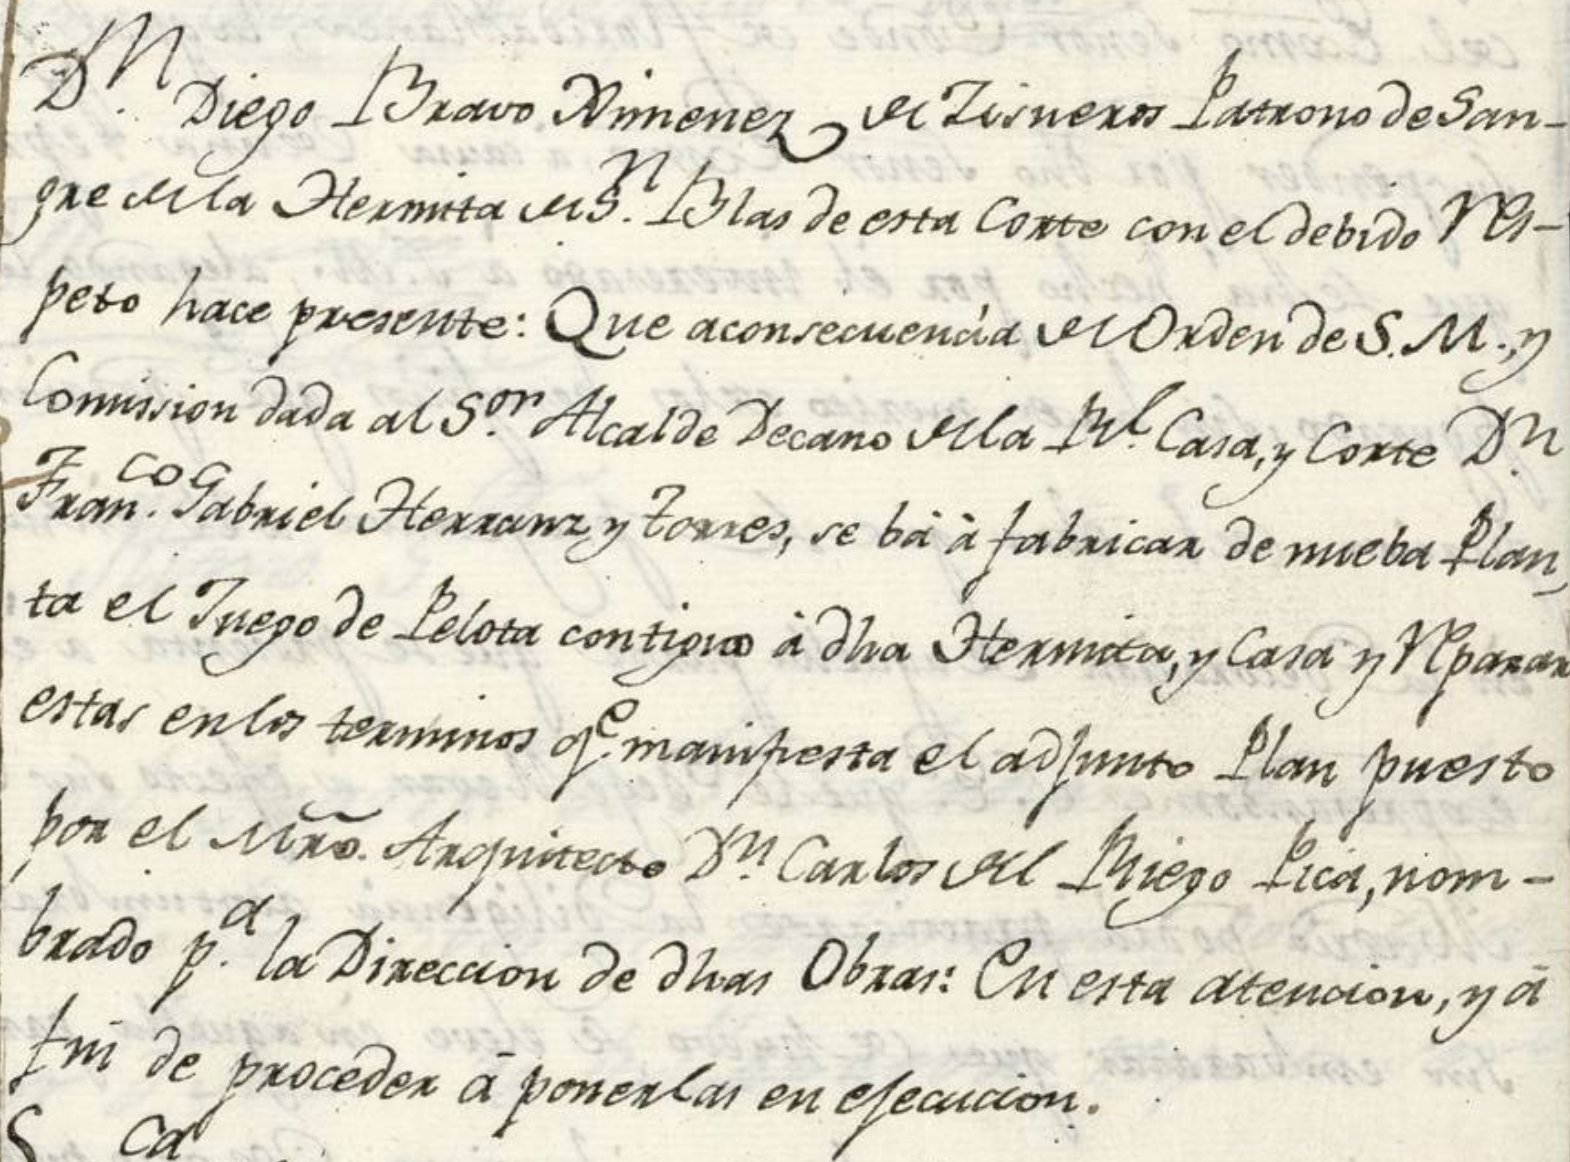 Dn. Diego Bravo Ximenez de Zisneros Patrono de San-
gre de la Hermita de Sn. Blas de esta Corte con el debido Res-
peto hace presente: Que aconsecuencia de Orden de S. M., y
Comission dada al Sor. Alcalde Decano de la Rl. Casa, y Corte Dn.
Franco. Gabriel Herranz y Torres, se bá à fabricar de nueba Plan,
ta el Juego de Pelota contiguo à dha Hermita, y Casa y Reparar
estas en los terminos qe. manifiesta el adjunto Plan puesto
por el Mro. Arquitecto Dn. Carlos del Riego Pica, nom-
brado pa. la Direccion de dhas Obras: En esta atencion, y á
fin de proceder á ponerlas en ejecucion.